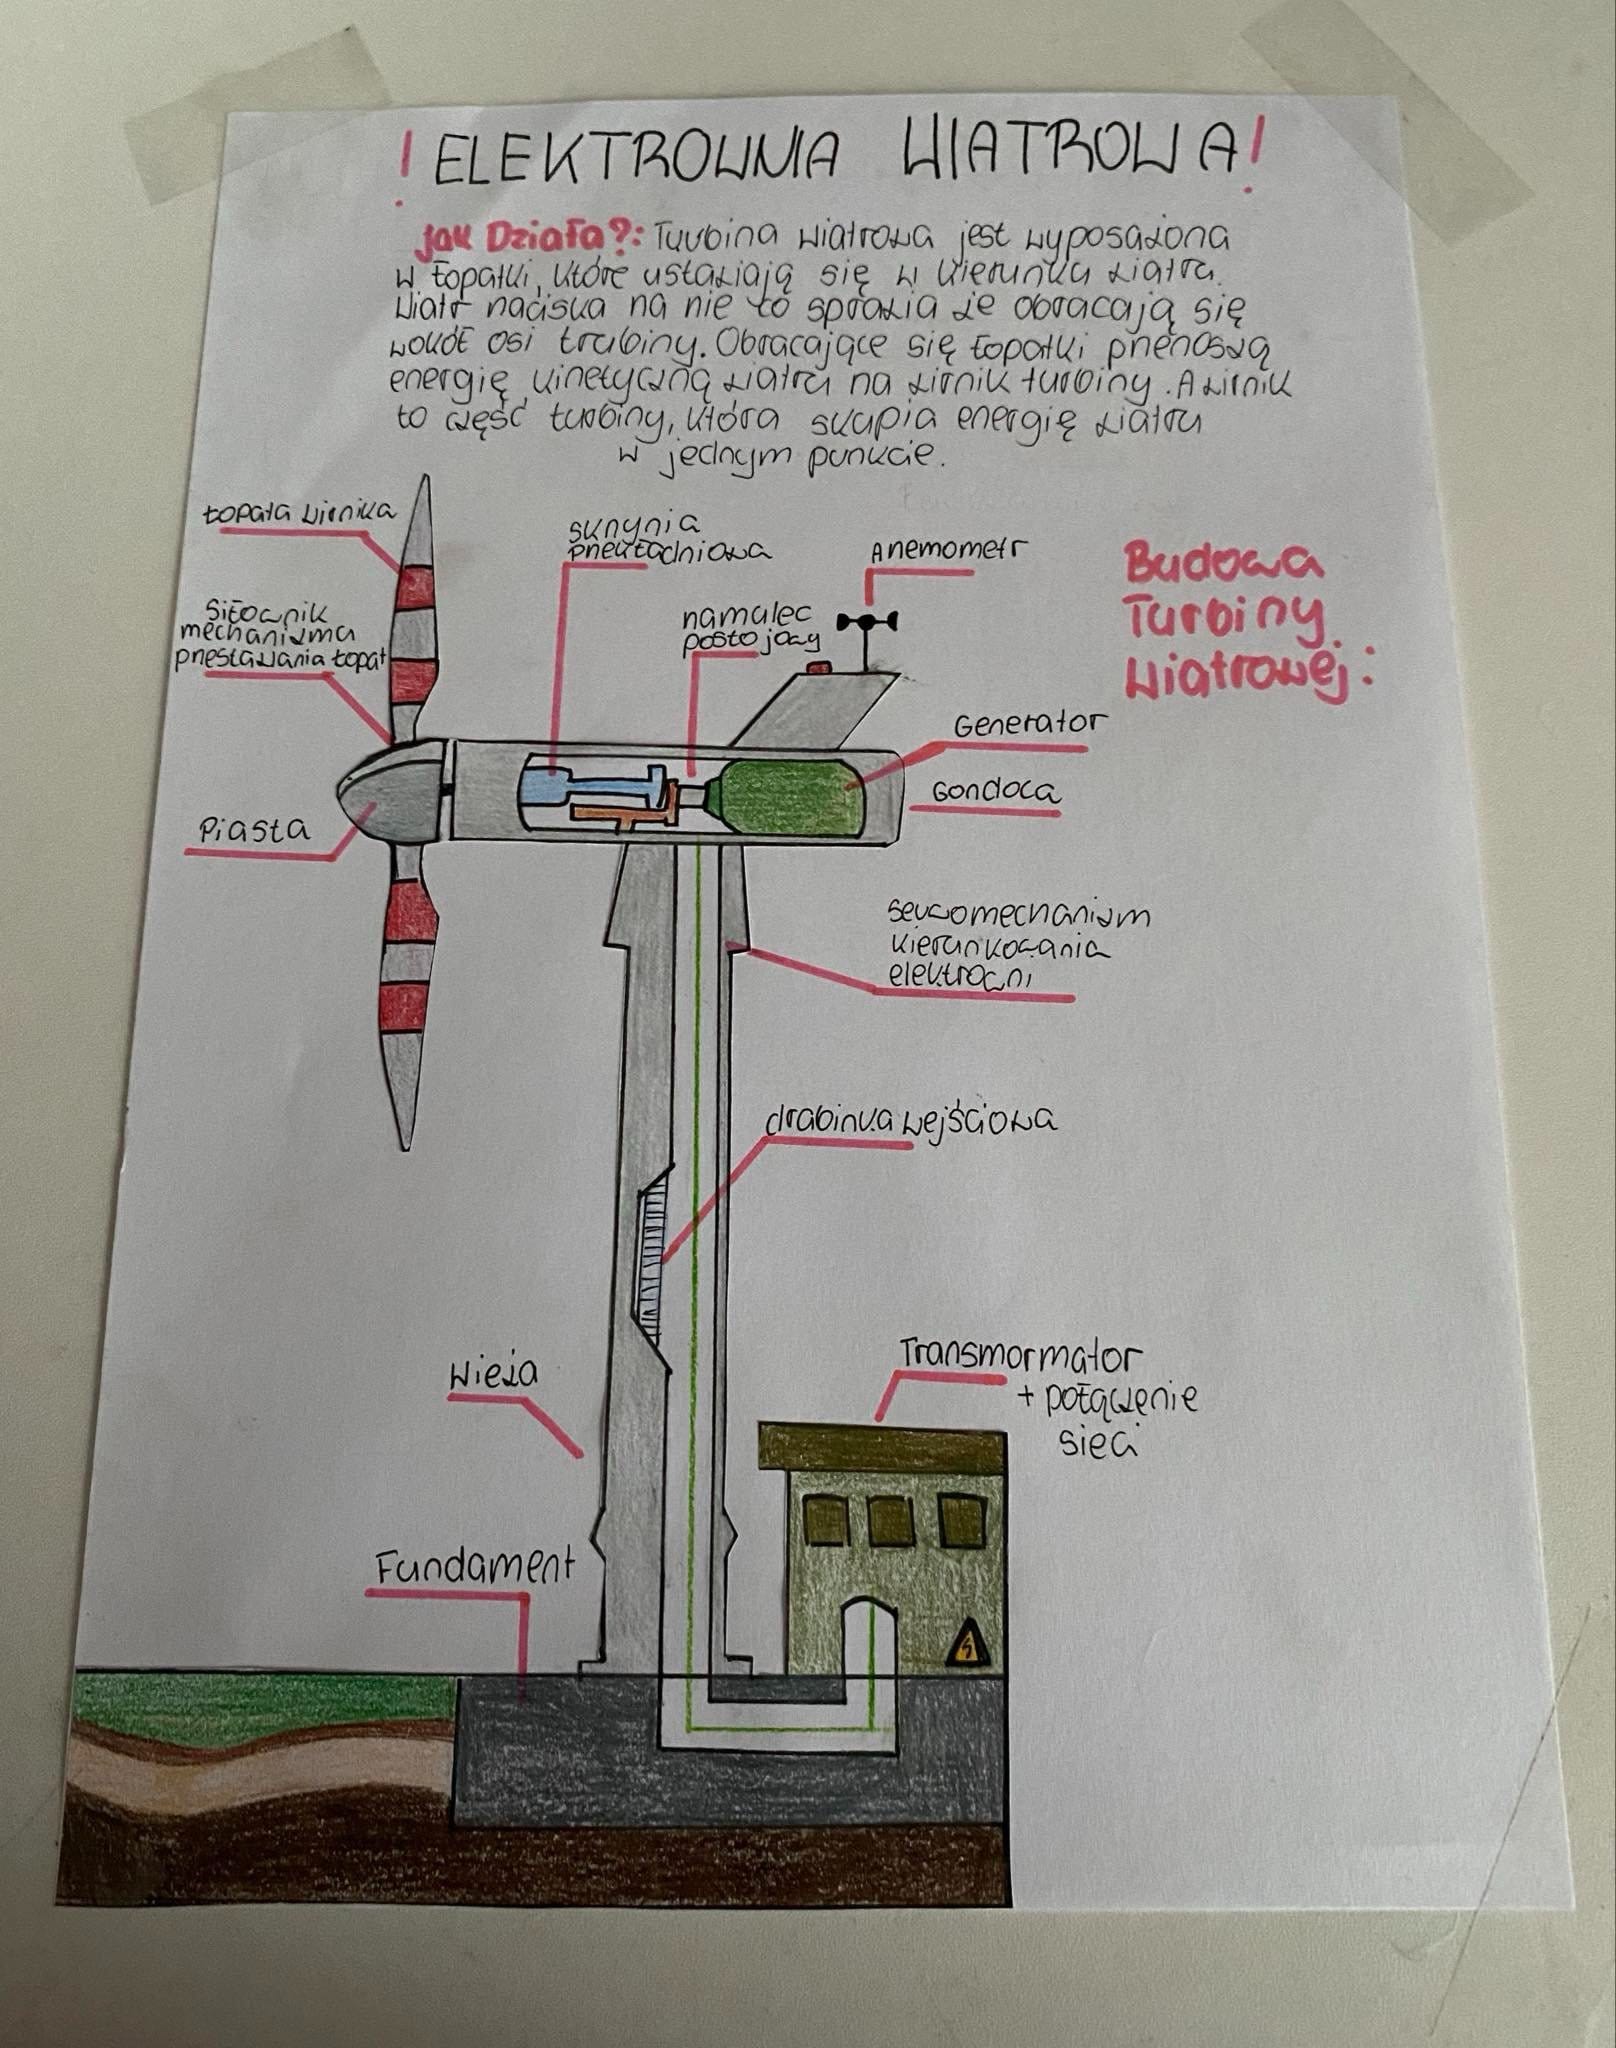 ! ELEKTROWNIA WIATROWA !
Jak Działa?: Turbina wiatrowa jest wyposażona
w łopatki, które ustawiają się w kierunku wiatru.
Wiatr naciska na nie to sprawia że obracają się
wokół osi trubiny. Obracające się łopatki przenoszą
energię kinetyczną wiatru na wirnik turbiny. A wirnik
to część turbiny, która skupia energię wiatru
w jednym punkcie.
łopata wirnika
skrzynia
przekładniowa
Anemometr
Budowa
Turbiny
Wiatrowej:
Siłownik
mechanizma
przestawiania łopat
hamulec
postojowy
Generator
Gondola
Piasta
serwomechanizm
kierunkowania
elektrowni
drabinka wejściowa
Wieża
Transmormator
+ połączenie
sieci
Fundament